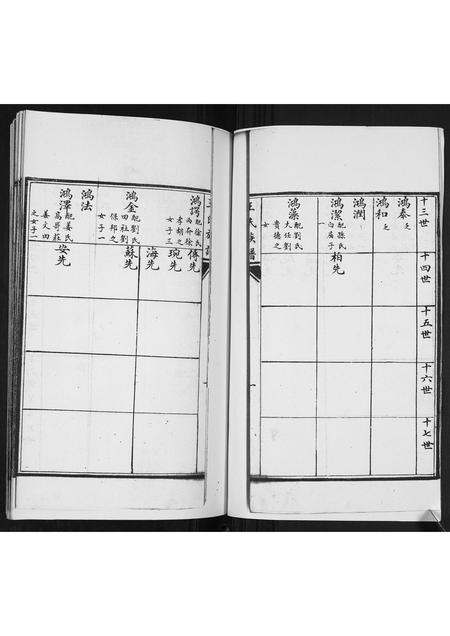 十三世
十四世
十五世
十六世
十七世
鴻泰乏
鴻和乏
鴻潤
鴻潔配孫氏
白廟子
一
柏先
鴻藻配劉氏
大任劉
貴德之
女
王氏族譜
鴻謌配徐氏
西夼徐
孝胡之
女子三
傳先
琬先
海先
鴻金配劉氏
田社劉
保邦之
女子一
蘇先
鴻法
鴻澤配姜氏
高哥莊
姜文田
之女子一
安先